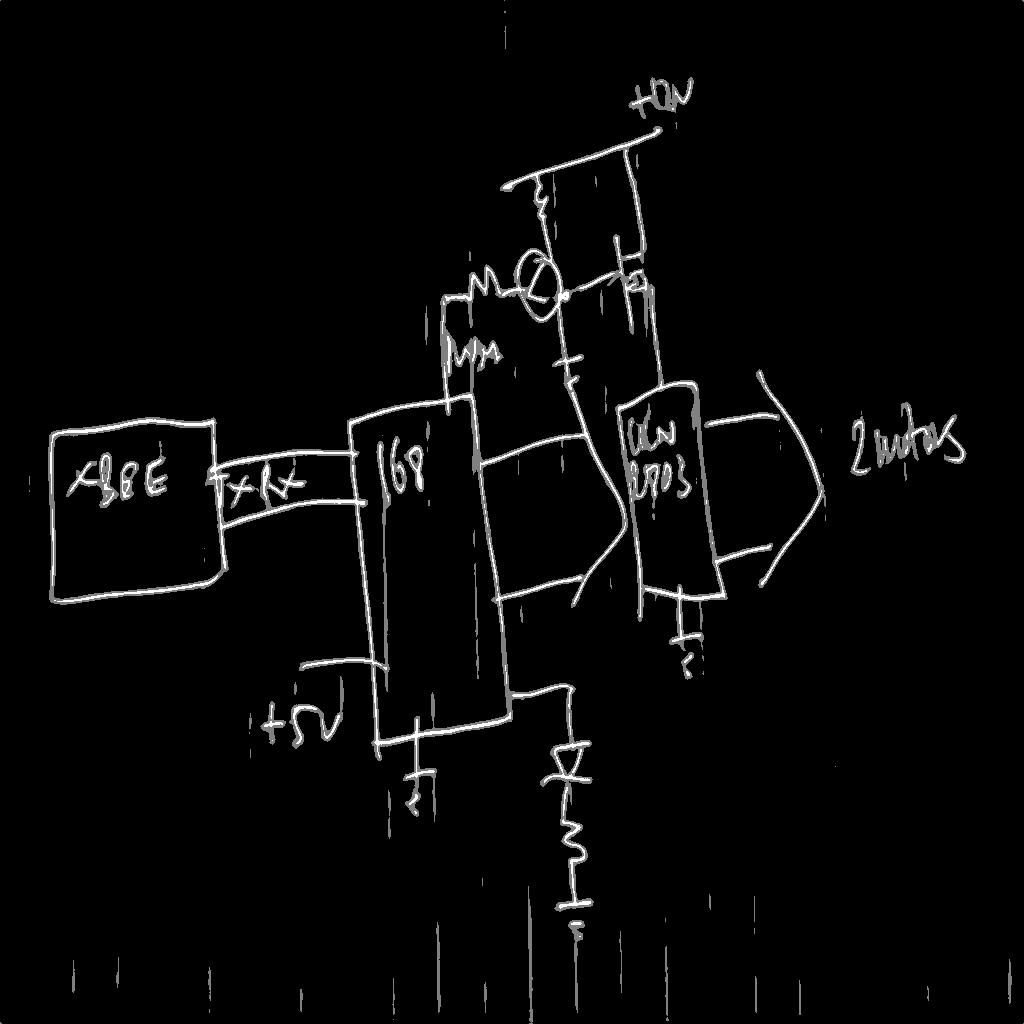 XBEE
XRX
168
UCN
2803
2 motors
+5V